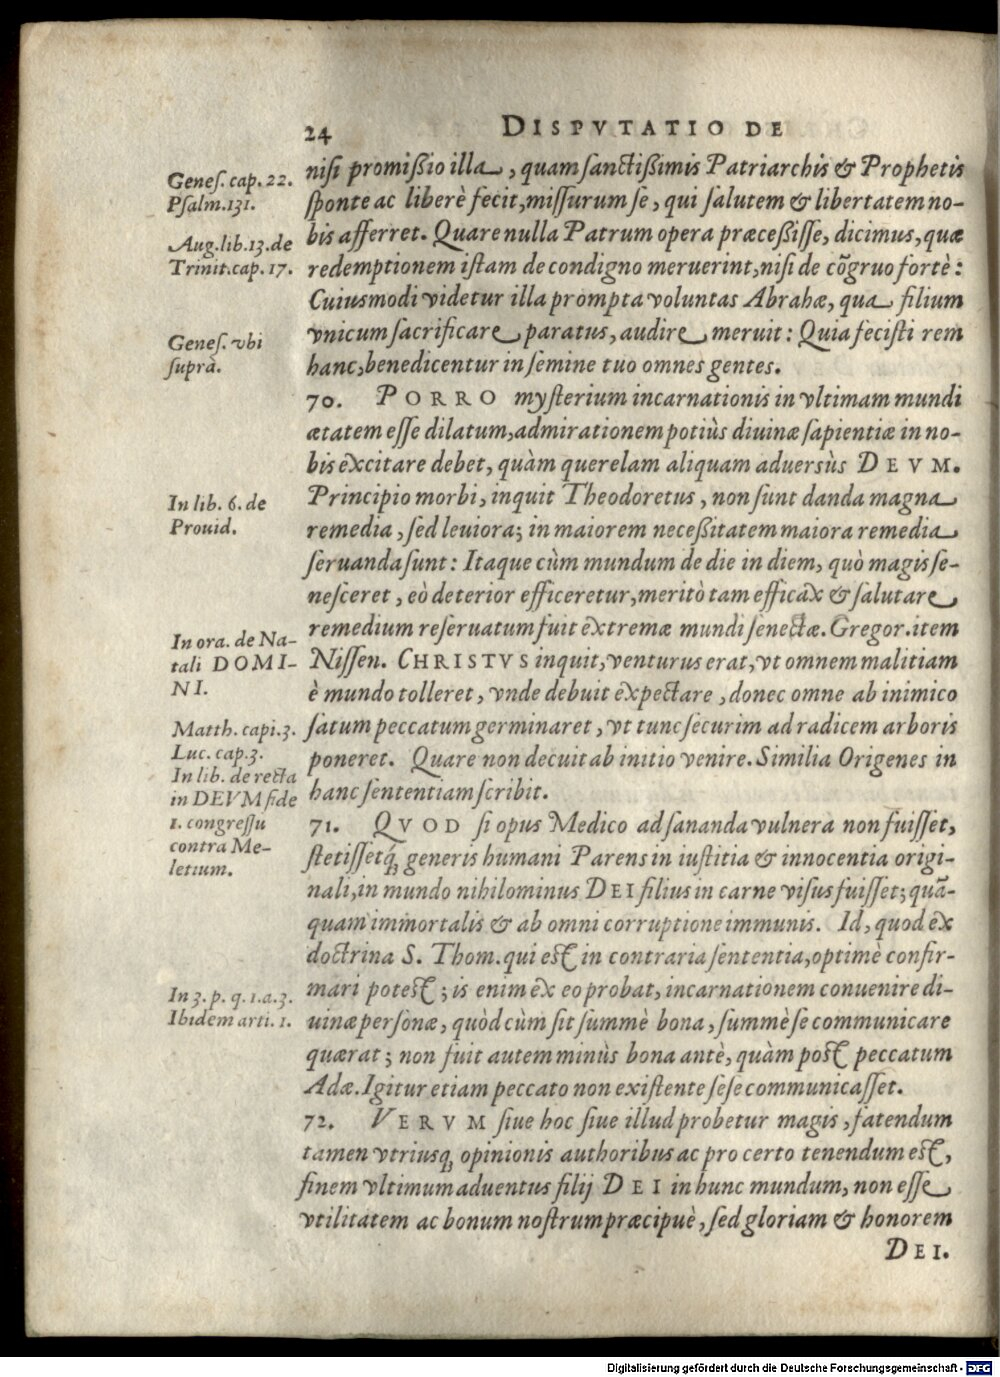 24 DISPVTATIO DE
nisi promißio illa, quam sanctißimis Patriarchis & Prophetis
sponte ac liberè fecit, missurum se, qui salutem & libertatem no-
bis afferret. Quare nulla Patrum opera præceßisse, dicimus, quæ
redemptionem istam de condigno meruerint, nisi de cõgruo fortè:
Cuiusmodi videtur illa prompta voluntas Abrahæ, qua filium
vnicum sacrificare paratus, audire meruit: Quia fecisti rem
hanc, benedicentur in semine tuo omnes gentes.
70. PORRO mysterium incarnationis in vltimam mundi
ætatem esse dilatum, admirationem potiùs diuinæ sapientiæ in no-
bis excitare debet, quàm querelam aliquam aduersùs DEVM.
Principio morbi, inquit Theodoretus, non sunt danda magna
remedia, sed leuiora; in maiorem neceßitatem maiora remedia
seruanda sunt: Itaque cùm mundum de die in diem, quò magis se-
nesceret, eò deterior efficeretur, meritò tam efficax & salutare
remedium reseruatum fuit extremæ mundi senectæ. Gregor. item
Nissen. CHRISTVS inquit, venturus erat, vt omnem malitiam
è mundo tolleret, vnde debuit expectare, donec omne ab inimico
satum peccatum germinaret, vt tunc securim ad radicem arboris
poneret. Quare non decuit ab initio venire. Similia Origenes in
hanc sententiam scribit.
71. QVOD si opus Medico ad sananda vulnera non fuisset,
stetissetq́; generis humani Parens in iustitia & innocentia origi-
nali, in mundo nihilominus DEI filius in carne visus fuisset; quã-
quam immortalis & ab omni corruptione immunis. Id, quod ex
doctrina S. Thom. qui est in contraria sententia, optimè confir-
mari potest; is enim ex eo probat, incarnationem conuenire di-
uinæ personæ, quòd cùm sit summè bona, summè se communicare
quærat; non fuit autem minùs bona antè, quàm post peccatum
Adæ. Igitur etiam peccato non existente sese communicasset.
72. VERVM siue hoc siue illud probetur magis, fatendum
tamen vtriusq; opinionis authoribus ac pro certo tenendum est,
finem vltimum aduentus filij DEI in hunc mundum, non esse
vtilitatem ac bonum nostrum præcipuè, sed gloriam & honorem
DEI.
Genes. cap. 22.
Psalm. 131.
Aug. lib. 13. de
Trinit. cap. 17.
Genes. vbi
suprà.
In lib. 6. de
Prouid.
In ora. de Na-
tali DOMI-
NI.
Matth. capi. 3.
Luc. cap. 3.
In lib. de recta
in DEVM fide
1. congressu
contra Me-
letium.
In 3. p. q. 1. a. 3.
Ibidem arti. 1.
Digitalisierung gefördert durch die Deutsche Forschungsgemeinschaft - DFG